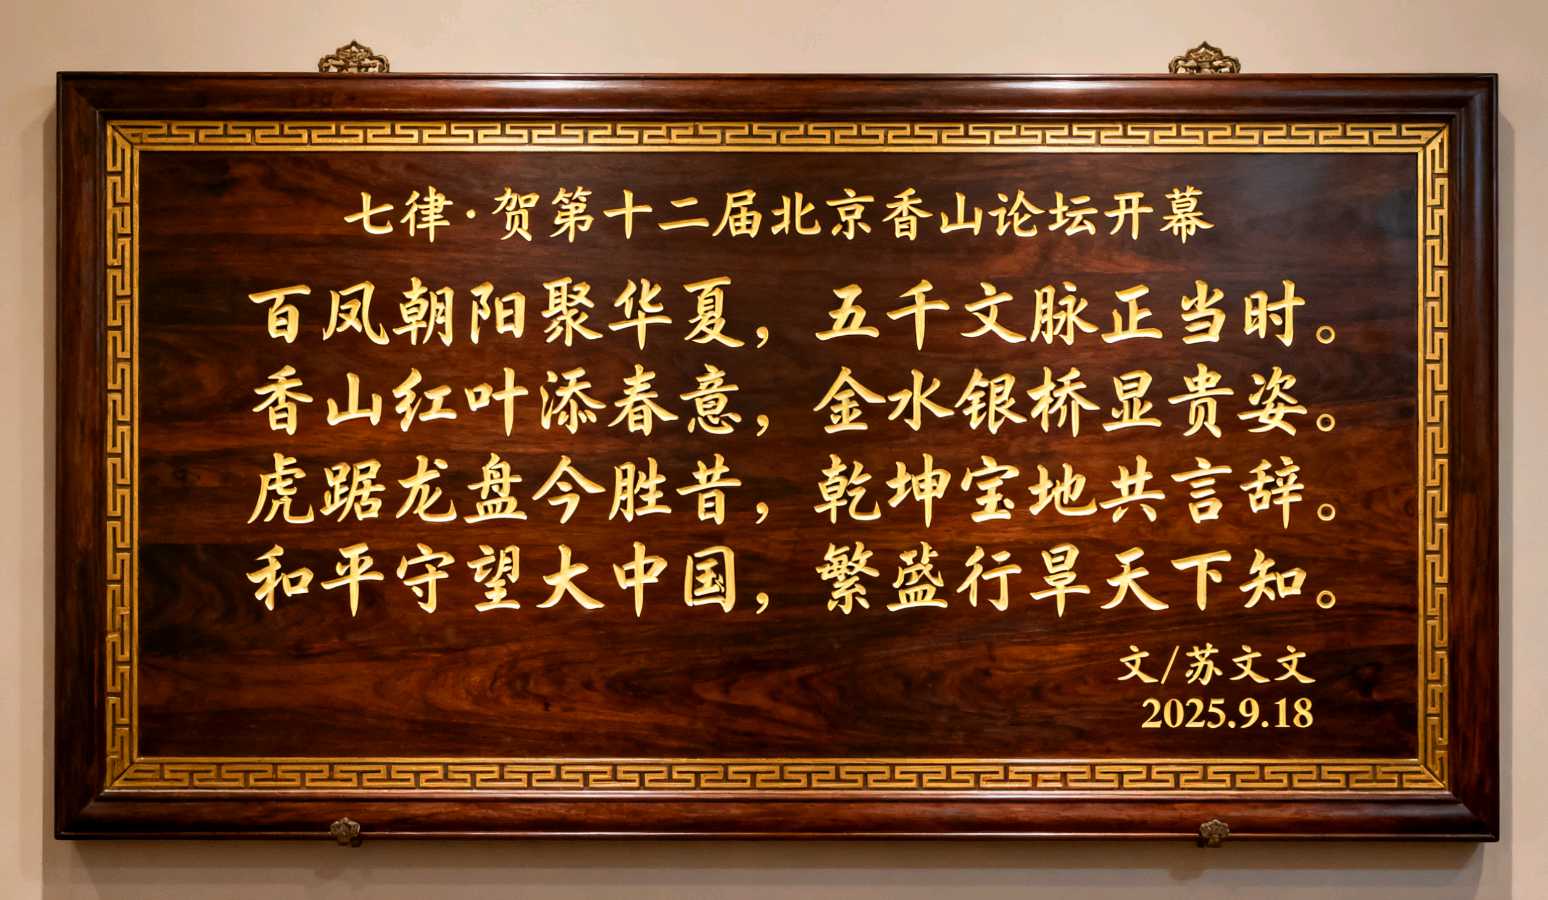 七律·贺第十二届北京香山论坛开幕
百凤朝阳聚华夏，五千文脉正当时。
香山红叶添春意，金水银桥显贵姿。
虎踞龙盘今胜昔，乾坤宝地共言辞。
和平守望大中国，繁盛行旱天下知。
文/苏文文
2025.9.18